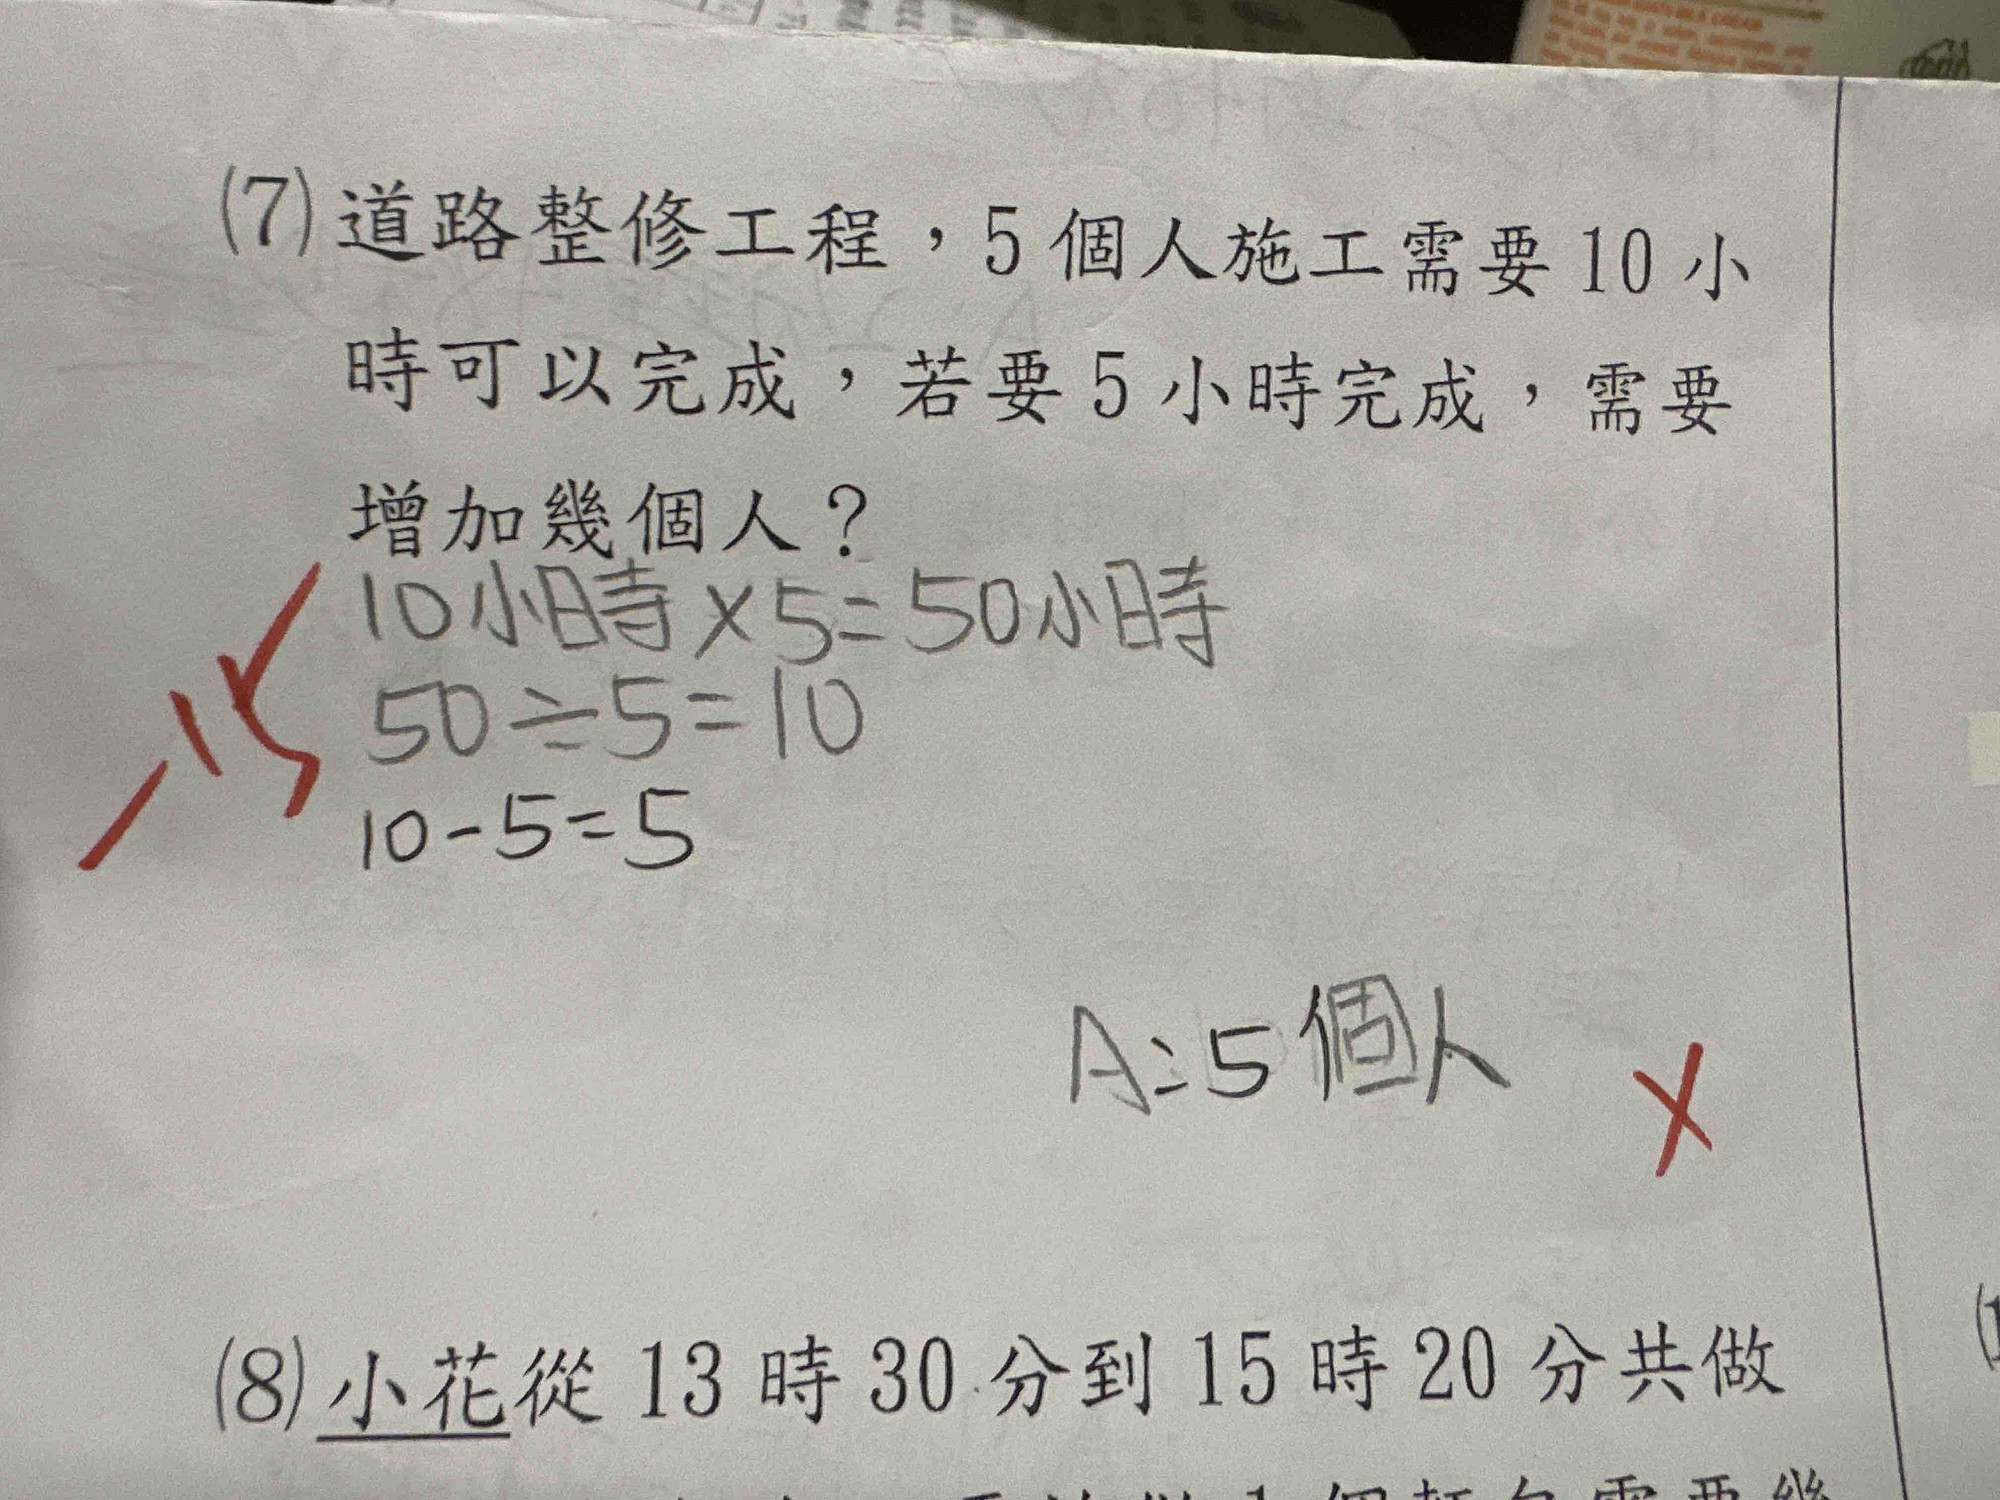 (7)道路整修工程，5個人施工需要10小
時可以完成，若要5小時完成，需要
增加幾個人？
10小時×5=50小時
50÷5=10
10-5=5
A:5個人
(8)小花從13時30分到15時20分共做